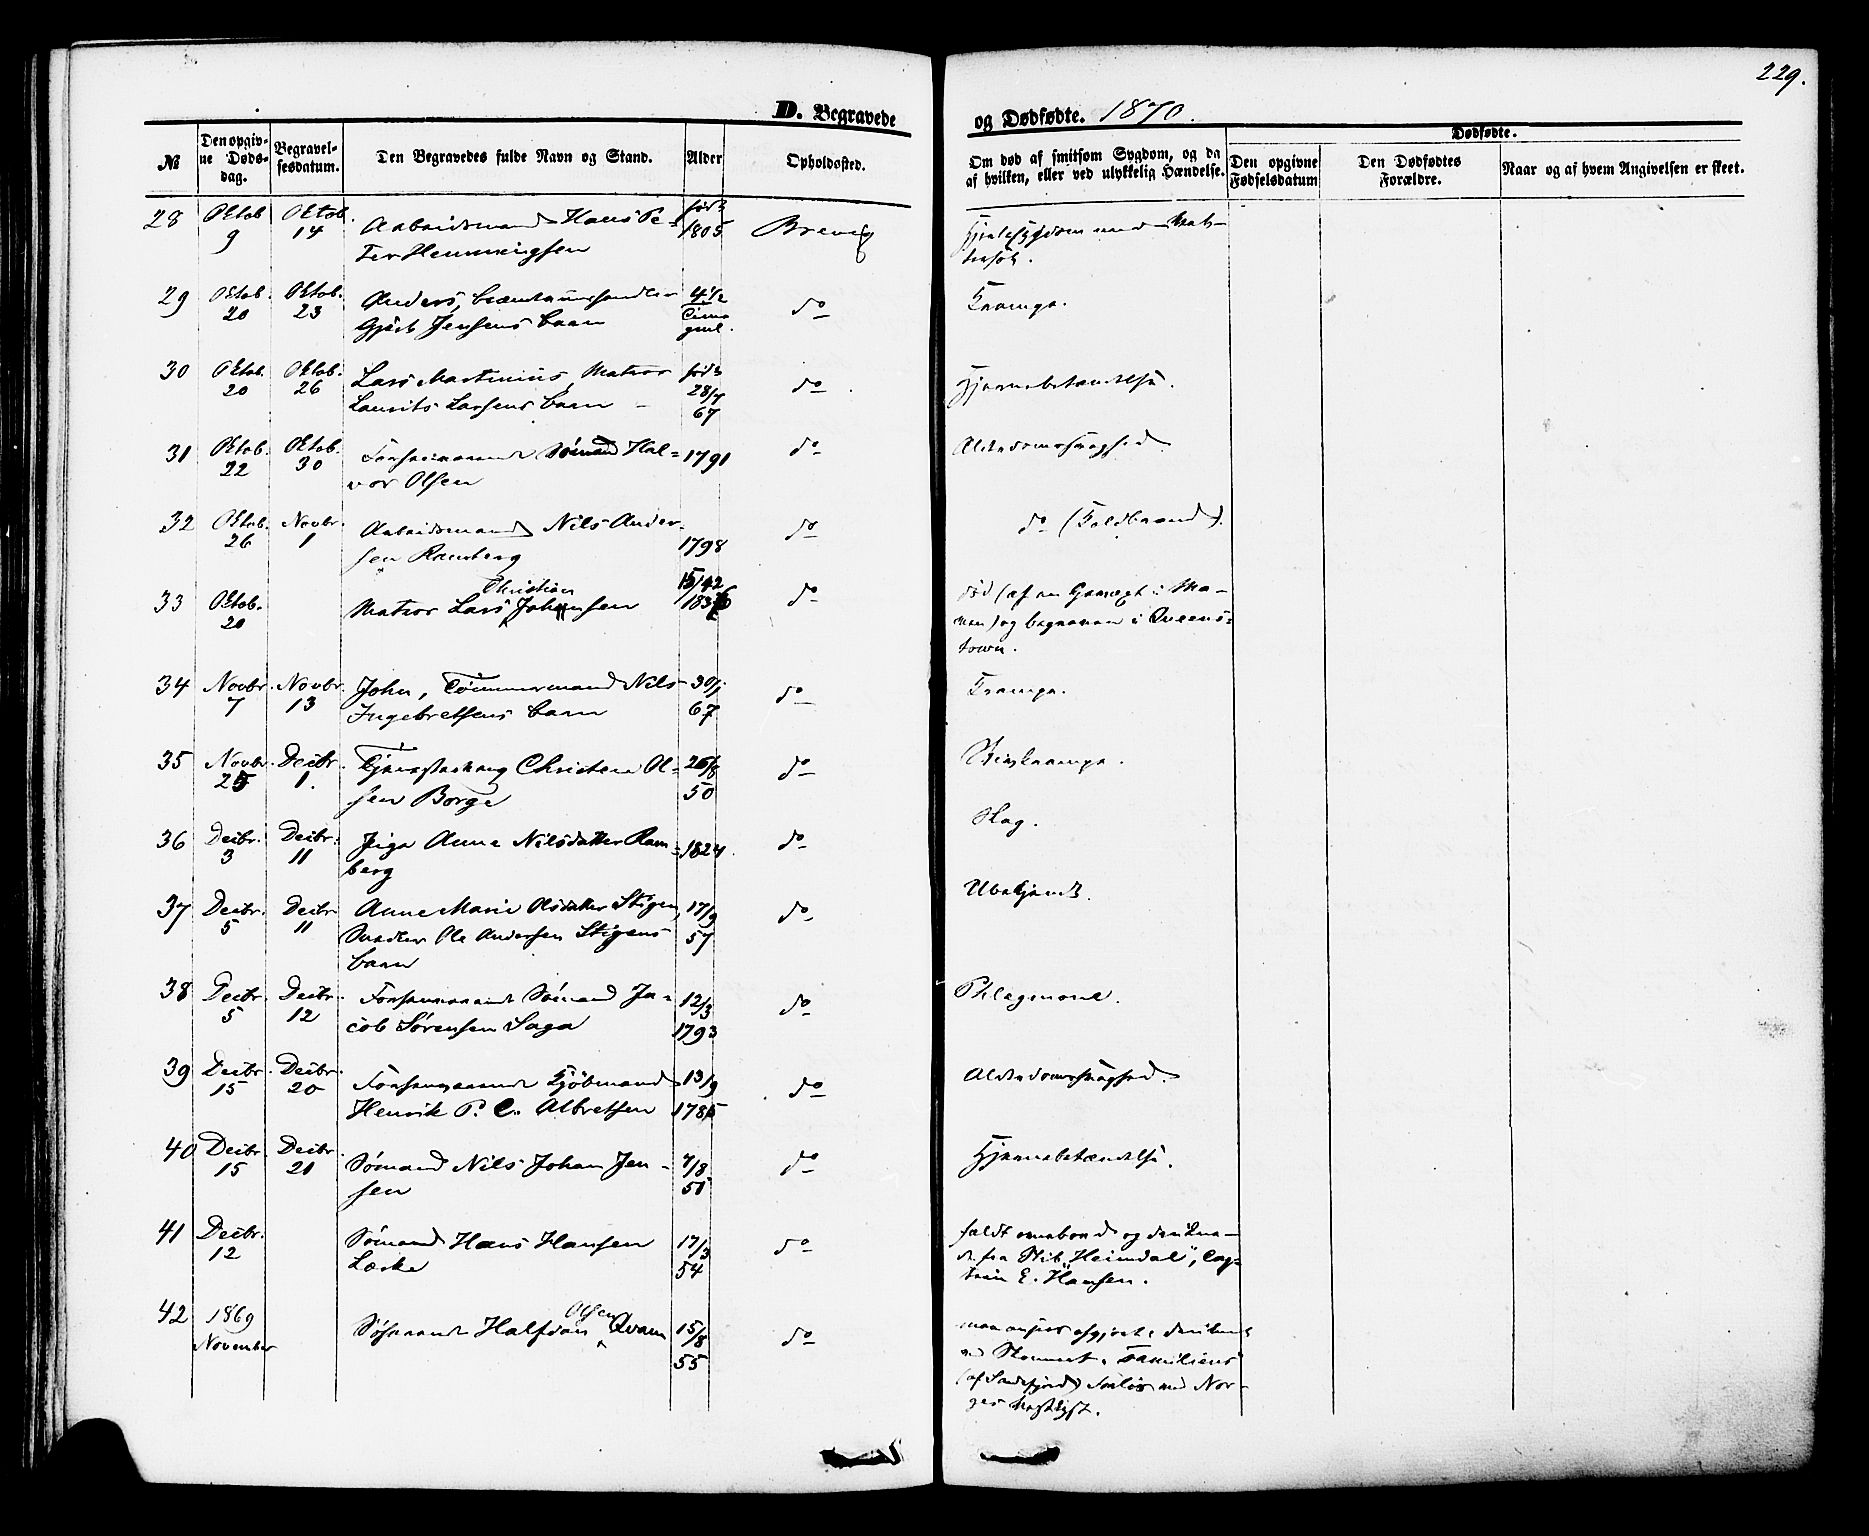 229.
D. Begravede og Dødfødte. 1870.
№
Den opgivne Dødsdag.
Begravelsesdatum.
Den Begravedes fulde Navn og Stand.
Alder
Opholdssted.
Om død af smitsom Sygdom, og da af hvilken, eller ved ulykkelig Hændelse.
Dødfødte.
Den opgivne Fødselsdatum
Den Dødfødtes Forældre.
Naar og af hvem Angivelsen er skeet.
28 Oktob. 9 Oktob. 14 Arbeidsmand Hans Pe= født 1805 Brevig
ter Hemmingsen
Hjertesygdom med Vat-
tersot.
29 Oktob. 20 Oktob. 23 Anders, 4 1/2 Timo gml. do Krampe.
Gjert Jensens barn
30 Oktob. 20 Oktob. 26 Lars Martinius, Matros født 28/4 67 do Hjernebetændelse.
Laurits Larsens barn
31 Oktob. 22 Oktob. 30 Forhenværende Sømand Hal= 1791 do Alderdomssvaghed
vor Olsen
32 Oktob. 26 Novbr. 1 Arbeidsmand Nils Ander- 1798 do do (Koldbrand).
sen Ramberg
33 Oktob. 20 Matros Lars Christian Johnsen 15/12 1836 do
død (af en
og begraven i Queens=
town.
34 Novbr. 7 Novbr. 13 John, Tømmermand Nils 30/1 67 do Krampe.
Ingebretsens barn
35 Novbr. 25 Decbr. 1. Christen Ol= 26/8 50 do
sen Borge
36 Decbr. 3 Decbr. 11 Pige Anne Nilsdatter Ram= 1824. do Slag.
berg
37 Decbr. 5 Decbr. 11 Anne Marie Olsdatter Stigen, 17/9 57 do Ubekjendt.
Snedker Ole Andersen Stigens
barn
38 Decbr. 5 Decbr. 12 Forhenværende Sømand Ja= 12/3 1793 do Phlegmone.
cob Sørensen Saga
39 Decbr. 15 Decbr. 20 Forhenværende Kjøbmand 13/9 1785 do Alderdomssvaghed.
Henrik P. C. Albretsen
40 Decbr. 15 Decbr. 21 Sømand Nils Johan Jen- 7/8 51 do Hjernebetændelse.
sen
41 Decbr. 12 Sømand Hans Hansen 17/3 54 do
Lærke
faldt overbord og drukne-
de fra Skib "Heimdal", Cap=
tain E. Hansen.
42 1869 November Søfarende Halfdan Olsen Qvam 15/8 55 do
man anser afgjort: druknet
med Skonnert "Familiens"
(af Sandefjord) Forlis ved Nor-
ges Vestkyst.